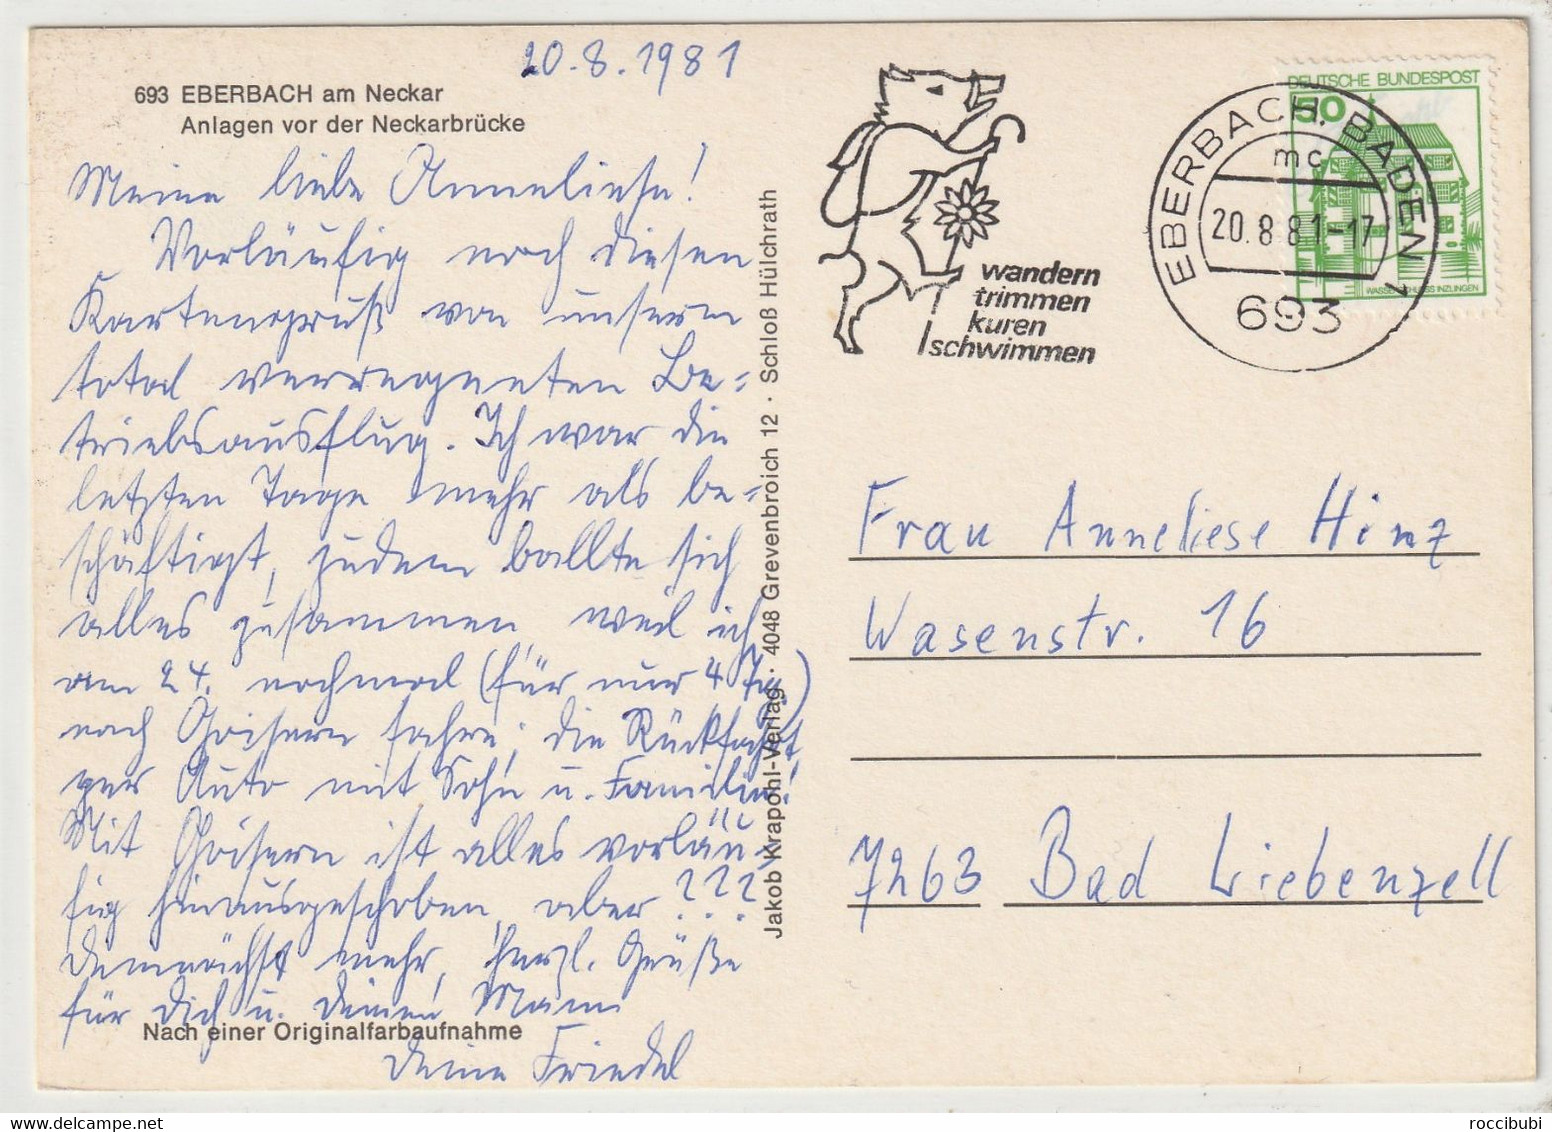 20.8.1981
693 EBERBACH am Neckar
Anlagen vor der Neckarbrücke
Meine liebe Anneliese!
Vorläufig noch diesen
Kartengruß von unserm
total verregneten Be-
triebsausflug. Ich war die
letzten Tage mehr als be-
schäftigt, zudem ballte sich
alles zusammen, weil ich
am 24. nochmal (für nur 4 Tg.)
nach Goisern fahre; die Rückfahrt
per Auto mit Sohn u. Familie!
Mit Goisern ist alles vorläu-
fig hinausgeschoben, aber ???
Demnächst mehr, herzl. Grüße
für Dich u. Deinen Mann
Deine Friedel
Nach einer Originalfarbaufnahme
Jakob Krapohl-Verlag · 4048 Grevenbroich 12 · Schloß Hülchrath
wandern
trimmen
kuren
schwimmen
EBERBACH, BADEN 1
mc
20.8.81-17
693
DEUTSCHE BUNDESPOST
50
WASSERSCHLOSS INZLINGEN
Frau Anneliese Hinz
Wasenstr. 16
7263 Bad Liebenzell
roccibubi